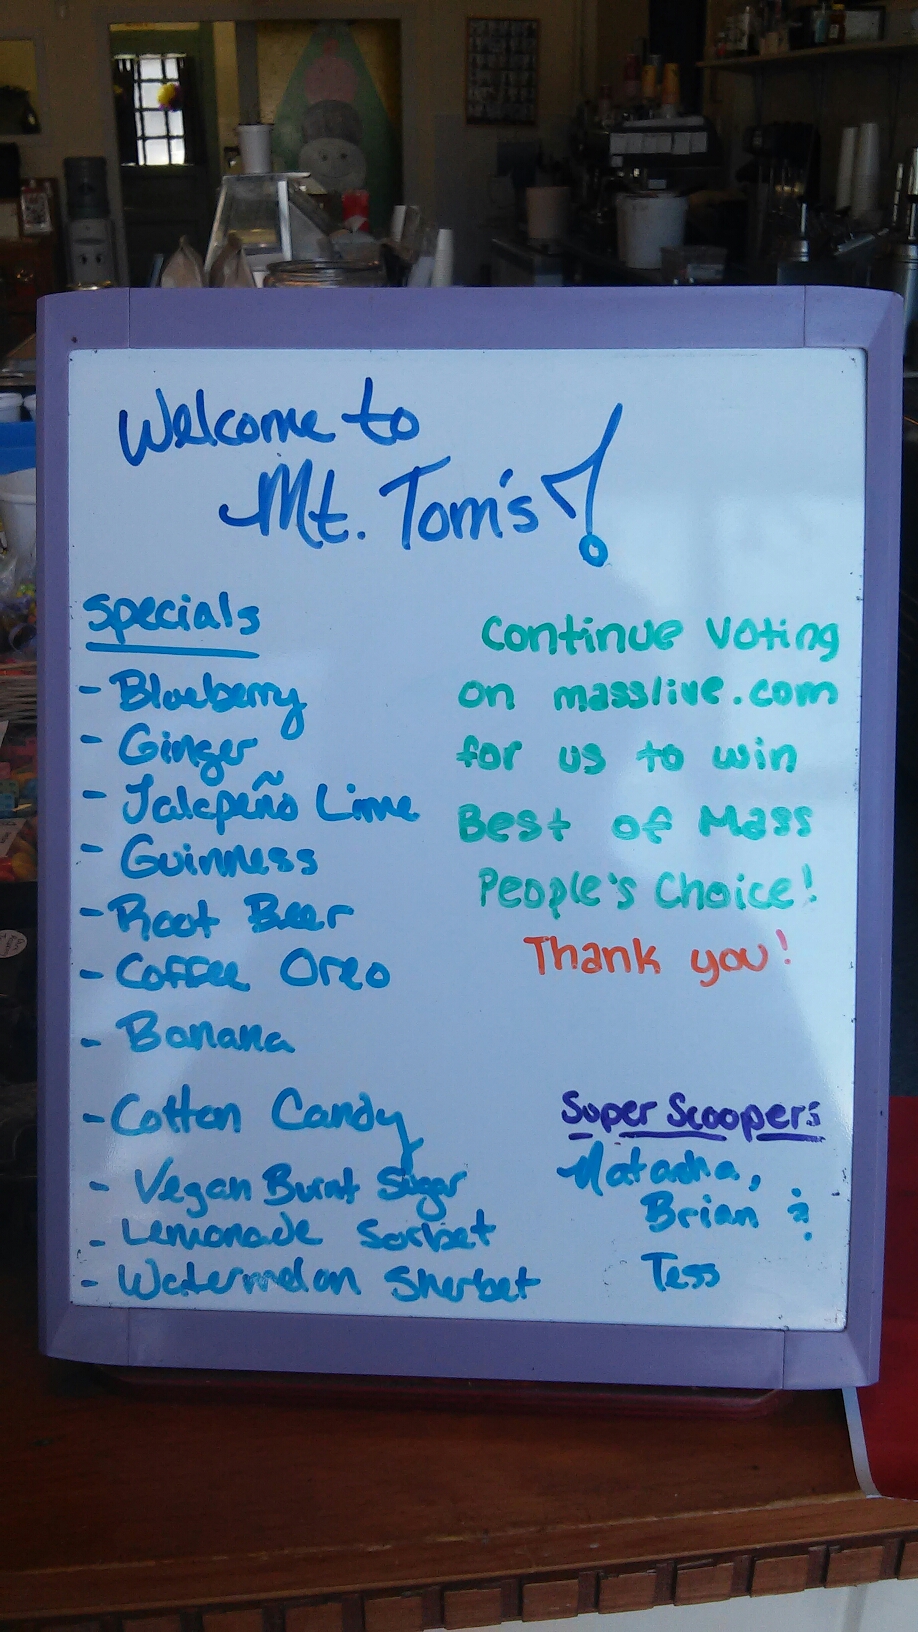 Welcome to
Mt. Tom's!
Specials
- Blueberry
- Ginger
- Jalepeño Lime
- Guinness
- Root Beer
- Coffee Oreo
- Banana
- Cotton Candy
- Vegan Burnt Sugar
- Lemonade Sorbet
- Watermelon Sherbet
Continue Voting
on masslive.com
for us to win
Best of Mass
People's Choice!
Thank you!
Super Scoopers
Natasha,
Brian &
Tess